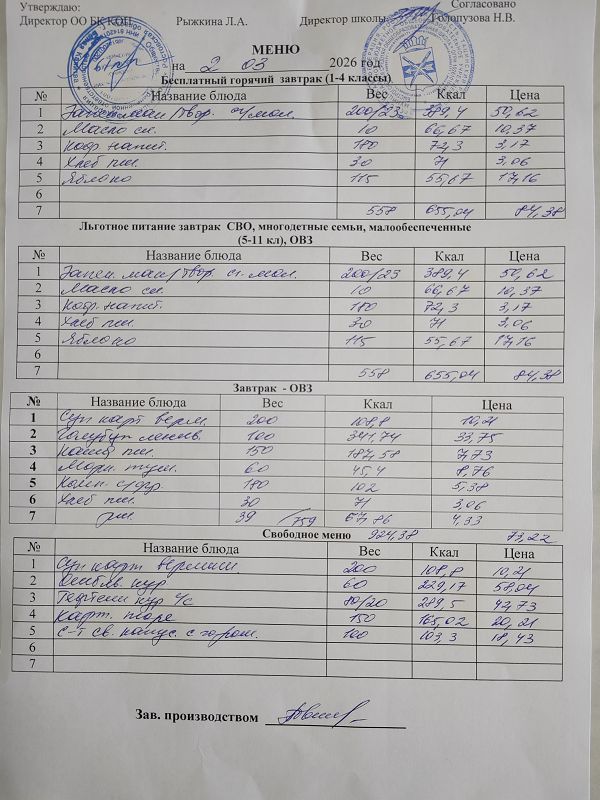 Утверждаю:
Согласовано
Директор ОО БК КОП Рыжкина Л.А. Директор школы Голопузова Н.В.
МЕНЮ
на 2 03 2026 год
Бесплатный горячий завтрак (1-4 классы)
№ Название блюда Вес Ккал Цена
1 Запек. ман/твор. сг/мол. 200/25 389,4 50,62
2 Масло сл. 10 66,67 10,37
3 Коф. напит. 180 72,3 3,17
4 Хлеб пш. 30 71 3,06
5 Яблоко 115 55,67 17,16
6
7 558 655,04 84,38
Льготное питание завтрак СВО, многодетные семьи, малообеспеченные
(5-11 кл), ОВЗ
№ Название блюда Вес Ккал Цена
1 Запек. ман/твор. сг. мол. 200/25 389,4 50,62
2 Масло сл. 10 66,67 10,37
3 Коф. напит. 180 72,3 3,17
4 Хлеб пш. 30 71 3,06
5 Яблоко 115 55,67 17,16
6
7 558 655,04 84,38
Завтрак - ОВЗ
№ Название блюда Вес Ккал Цена
1 Суп карт верм. 200 108,8 10,21
2 Голубцы ленив. 100 341,74 33,75
3 Каша пш. 150 187,58 7,73
4 Морк. туш. 60 45,4 8,76
5 Комп. с/фр. 180 102 5,38
6 Хлеб пш. 30 71 3,06
7 рж. 39 /759 67,86 4,33
Свободное меню 924,38 73,22
№ Название блюда Вес Ккал Цена
1 Суп карт вермиш. 200 108,8 10,21
2 кур 60 229,17 58,04
3 Тефтели кур ч/с 80/20 289,5 42,73
4 Карт. пюре 150 165,02 20,21
5 С-т св. капус. с горош. 100 103,3 18,43
6
7
Зав. производством